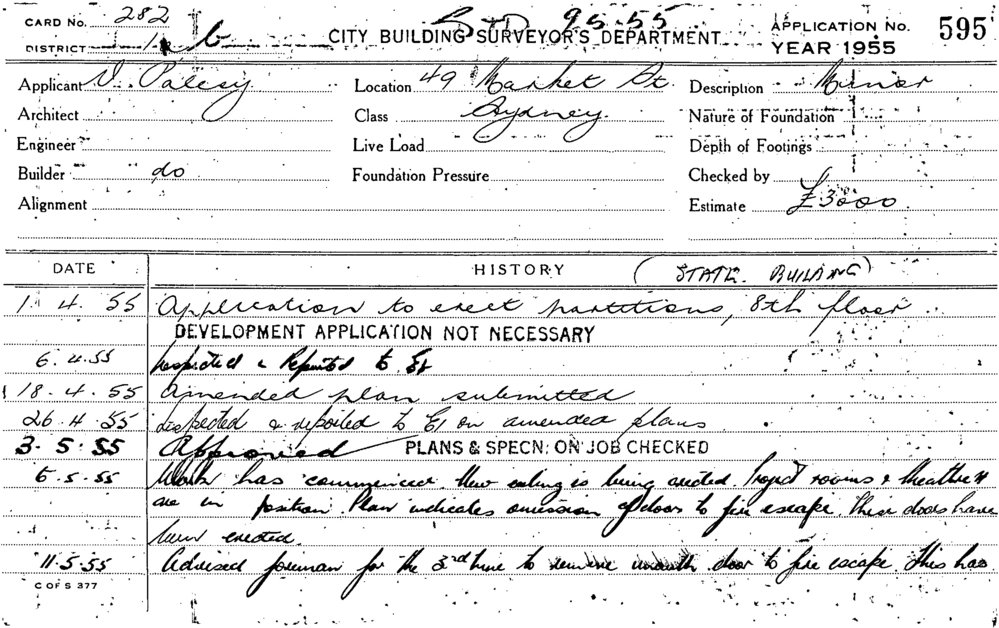 CARD No. 282
S.T.D. 95.55
APPLICATION No. 595
DISTRICT 1 b
CITY BUILDING SURVEYOR'S DEPARTMENT
YEAR 1955
Applicant
Location 49 Market St
Description Minor
Architect
Class Sydney
Nature of Foundation
Engineer
Live Load
Depth of Footings
Builder do
Foundation Pressure
Checked by
Alignment
Estimate £3000
DATE
HISTORY
(STATE BUILDING)
1.4.55 Application to erect partitions, 8th floor
DEVELOPMENT APPLICATION NOT NECESSARY
6.4.55 Inspected & Reported to
18.4.55 Amended plan submitted
26.4.55 Inspected & reported to on amended plans
3.5.55 Approved PLANS & SPECN. ON JOB CHECKED
6.5.55 Work has commenced New ceiling is being erected. rooms &
are in position. Plan indicates omission of doors to fire escape. These doors have
been erected.
11.5.55 Advised foreman for the 3rd time to remove door to fire escape. This has
C OF S 377